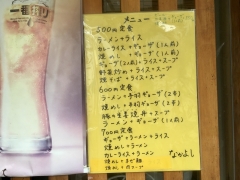 一番搾り
メニュー
500円定食
ラーメン+ライス
カレーライス+ギョーザ(1人前)
焼めし+ギョーザ(1人前)
ギョーザ(2人前)+ライス+スープ
野菜炒め+ライス+スープ
焼そば+ライス+スープ
600円定食
ラーメン+手羽ギョーザ(2ヶ)
焼めし+手羽ギョーザ(2ヶ)
豚の生姜焼丼+スープ
ラーメン+ギョーザ(2人前)
700円定食
ギョーザ+ラーメン+ライス
焼めし+ラーメン
カレーライス+ラーメン
焼めし+
焼めし+ スープ
なかよし